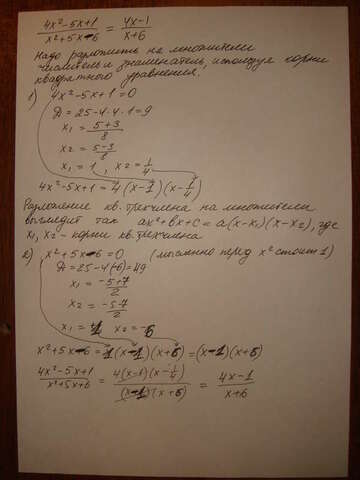 4x²-5x+1 / x²+5x-6 = 4x-1 / x+6
Надо разложить на множители
числитель и знаменатель, используя корни
квадратного уравнения.
1) 4x²-5x+1=0
Д=25-4·4·1=9
x₁ = 5+3 / 8
x₂ = 5-3 / 8
x₁ = 1, x₂ = 1/4
4x²-5x+1 = 4(x-1)(x-1/4)
Разложение кв. трехчлена на множители
выглядит так ax²+bx+c = a(x-x₁)(x-x₂), где
x₁, x₂ - корни кв. трехчлена
2) x²+5x-6=0 (мысленно перед x² стоит 1)
Д=25-4·(-6)=49
x₁ = -5+7 / 2
x₂ = -5-7 / 2
x₁ = 1 x₂ = -6
x²+5x-6 = 1(x-1)(x+6) = (x-1)(x+6)
4x²-5x+1 / x²+5x+6 = 4(x-1)(x-1/4) / (x-1)(x+6) = 4x-1 / x+6